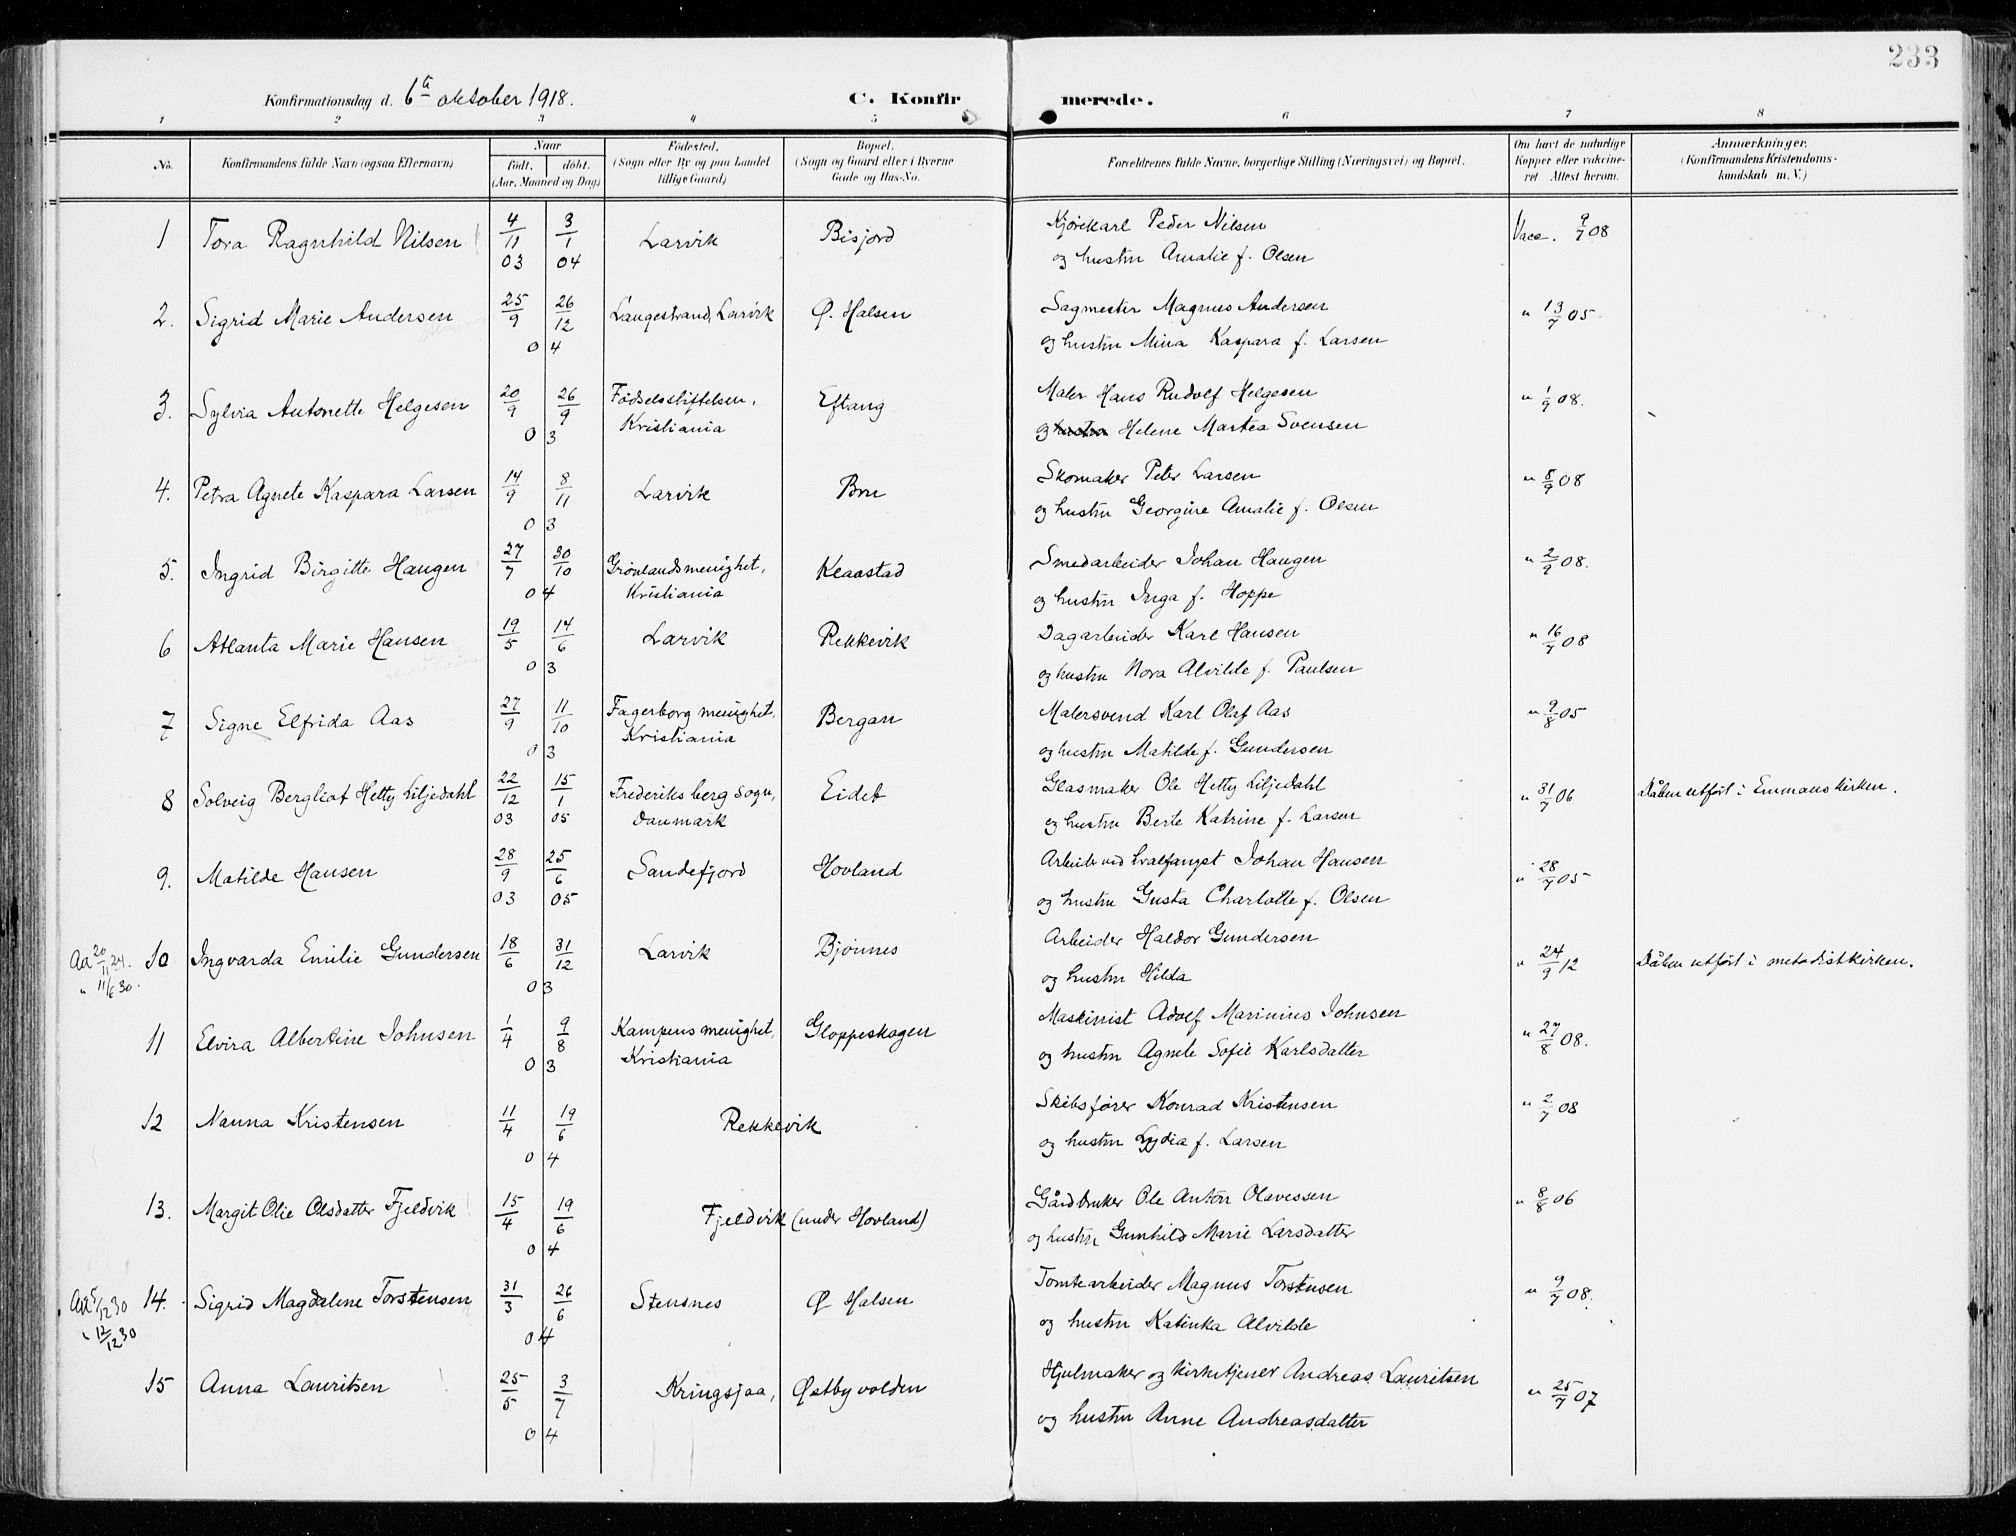 233
Konfirmationsdag d. 6te oktober 1918.
C. Konfirmerede.
1 2 3 4 5 6 7 8
No.
Konfirmandens fulde Navn (ogsaa Efternavn)
Naar
født. døbt.
(Aar, Maaned og Dag)
Fødested.
(Sogn eller By og paa Landet
tillige Gaard)
Bopæl.
(Sogn og Gaard eller i Byerne
Gade og Hus-No.
Forældrenes fulde Navne, borgerlige Stilling (Næringsvei) og Bopæl.
Om havt de naturlige
Kopper eller vakcine-
ret Attest herom.
Anmærkninger.
(Konfirmandens Kristendoms-
kundskab m. V.)
1 Tora Ragnhild Nilsen 4/11 03 3/1 04 Larvik Bisjord Kjørekarl Peder Nilsen Vacc. 9/7 08
og hustru Amalie f. Olsen
2. Sigrid Marie Andersen 25/9 26/12 04 Langestrand, Larvik Ø. Halsen Sagmester Magnus Andersen " 13/7 05.
og hustru Mina Kaspara f. Larsen
3. Sylvia Antonette Helgesen 20/9 26/9 03 Fødselsstiftelsen, Kristiania Eftang Maler Hans Rudolf Helgesen " 1/9 08.
og hustru Helene Martea Svensen
4. Petra Agnete Kaspara Larsen 14/9 8/11 03 Larvik Bru Skomaker Peter Larsen " 8/9 08
og hustru Georgine Amalie f. Olsen
5. Ingrid Birgitte Haugen 27/7 30/10 04 Grønlandsmenighet, Kristiania Klaastad Smedarbeider Johan Haugen " 2/9 08.
og hustru Inga f. Hoppe
6 Atlanta Marie Hansen 19/5 14/6 03 Larvik Rekkevik Dagarbeider Karl Hansen " 16/7 08
og hustru Nora Alvilde f. Paulsen
7 Signe Elfrida Aas 27/9 11/10 03 Fagerborg menighet, Kristiania Bergan Malersvend Karl Olaf Aas " 9/8 05
og hustru Matilde f. Gundersen
8 Solveig Bergliot Hetty Liljedahl 22/12 03 15/1 05 Frederiksberg sogn, Danmark Eidet Glasmaker Ole Hetty Liljedahl " 31/7 06 Dåben utført i Emmauskirken.
og hustru Berte Katrine f. Larsen
9. Matilde Hansen 28/9 03 25/6 05 Sandefjord Hovland Arbeide ved hvalfangst Johan Hansen " 28/7 05
og hustru Gusta Charlotte f. Olsen
Aa 20/11 24. 10 Ingvarda Emilie Gundersen 18/6 31/12 03 Larvik Bjønnes Arbeider Haldor Gundersen " 24/9 12 Dåben utført i metodistkirken.
" 11/6 30. og hustru Hilda
11 Elvira Albertine Johnsen 1/4 9/8 03 Kampens menighet, Kristiania Gloppeskogen Maskinist Adolf Marinius Johnsen " 27/8 08.
og hustru Agnete Sofie Karlsdatter
12 Nanna Kristensen 11/4 19/6 04 Rekkevik Skibsfører Konrad Kristensen " 2/7 08
og hustru Lydia f. Larsen
13. Margit Olie Olsdatter Fjeldvik 15/4 19/6 04 Fjeldvik (under Hovland) Gårdbruker Ole Anton Olavessen " 8/8 06
og hustru Gunhild Marie Larsdatter
Aa 5/12 30 14. Sigrid Magdalene Torstensen 31/3 26/6 04 Stensnes Ø Halsen Tomtearbeider Magnus Torstensen " 9/7 08.
" 12/12 30 og hustru Katinka Alvilde
15 Anna Lauritsen 25/5 3/7 04 Kringsjaa, Østbyvolden Hjulmaker og kirketjener Andreas Lauritsen " 25/7 07
og hustru Anne Andreasdatter